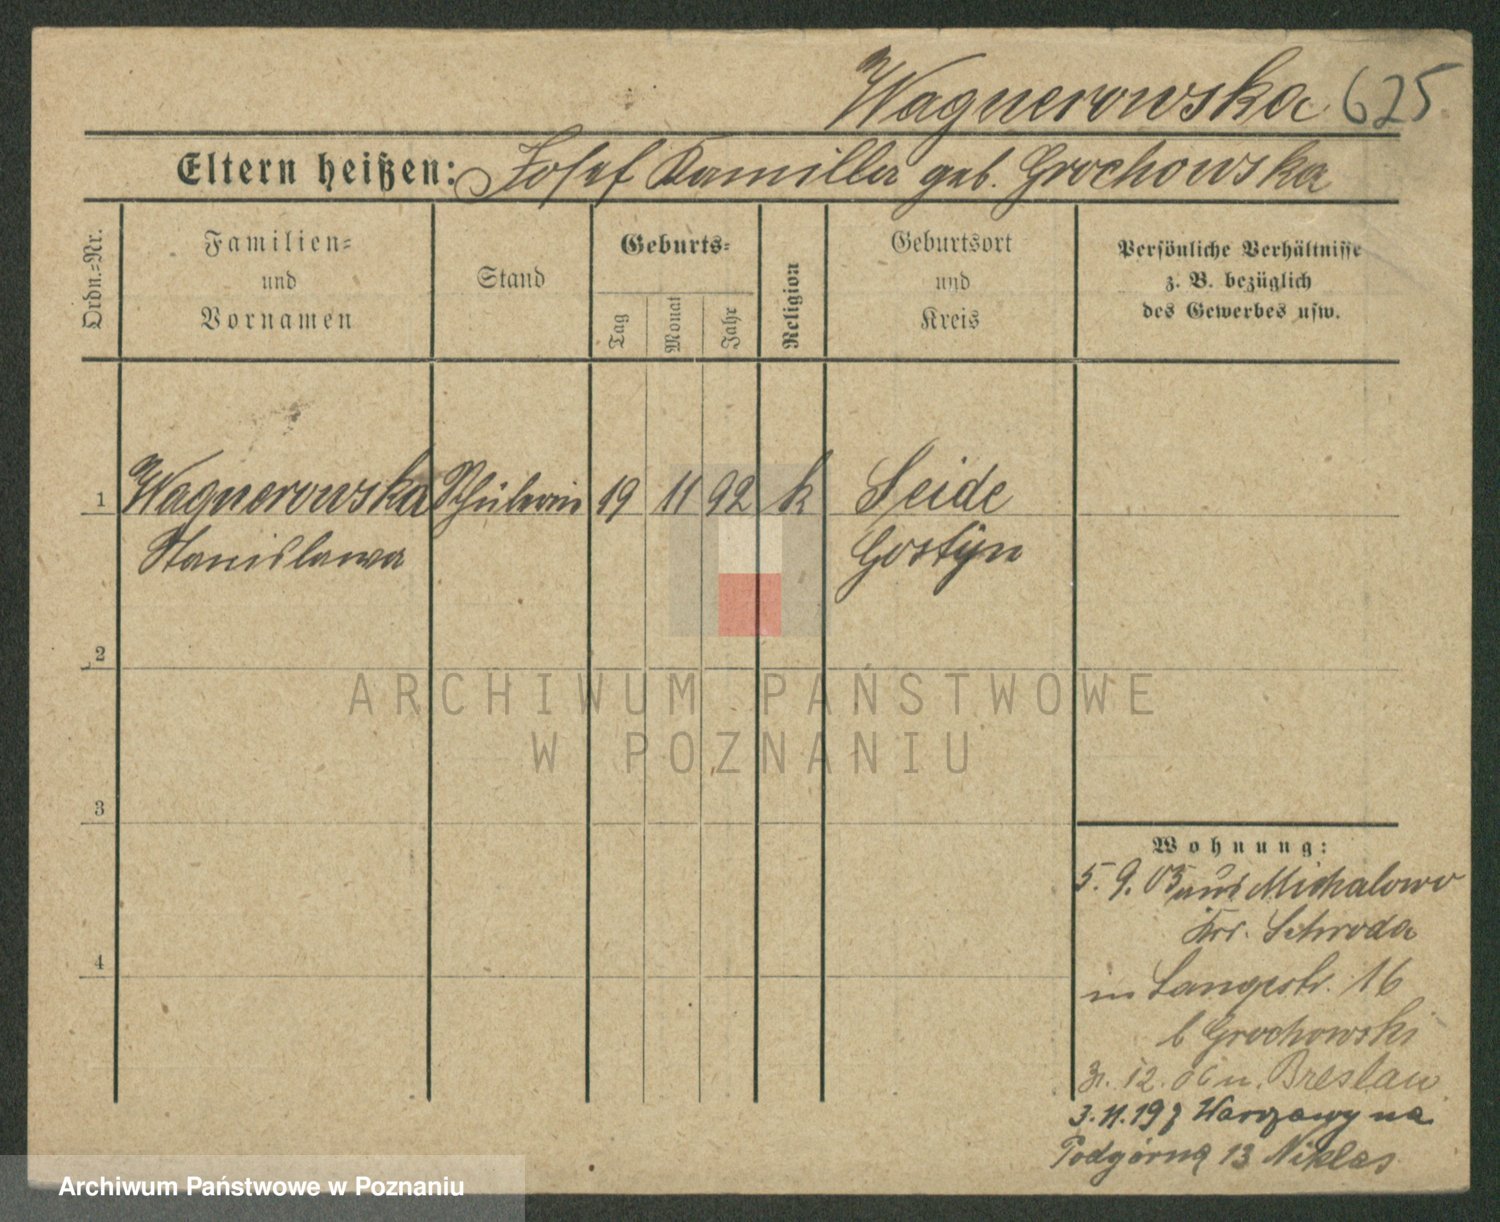 Wagnerowska 625
Eltern heißen: Josef Kamilla geb. Grochowska
Ordn.-Nr.
Familien- und Vornamen
Stand
Geburts-
Tag
Monat
Jahr
Religion
Geburtsort und Kreis
Persönliche Verhältnisse
z. B. bezüglich
des Gewerbes usw.
1 Wagnerowska Schülerin 19 11 92 k Seide
Stanislawa Gostyn
2
3
4
Wohnung:
5. 9. 05 aus Michalowo
Krr. Schroda
in Langestr. 16
b Grochowski
12. 06 n. Breslau
3.11.19 z Warszawy na
Podgórną 13 Niklas
ARCHIWUM PAŃSTWOWE
W POZNANIU
Archiwum Państwowe w Poznaniu